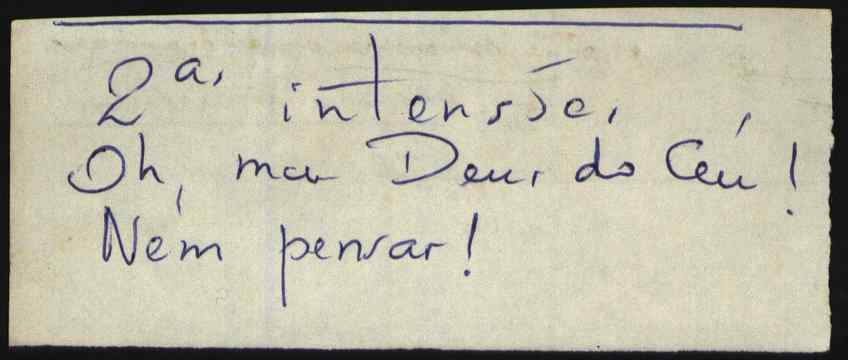 2ª intensõe,
Oh, meu Deus do Céu!
Nem pensar!